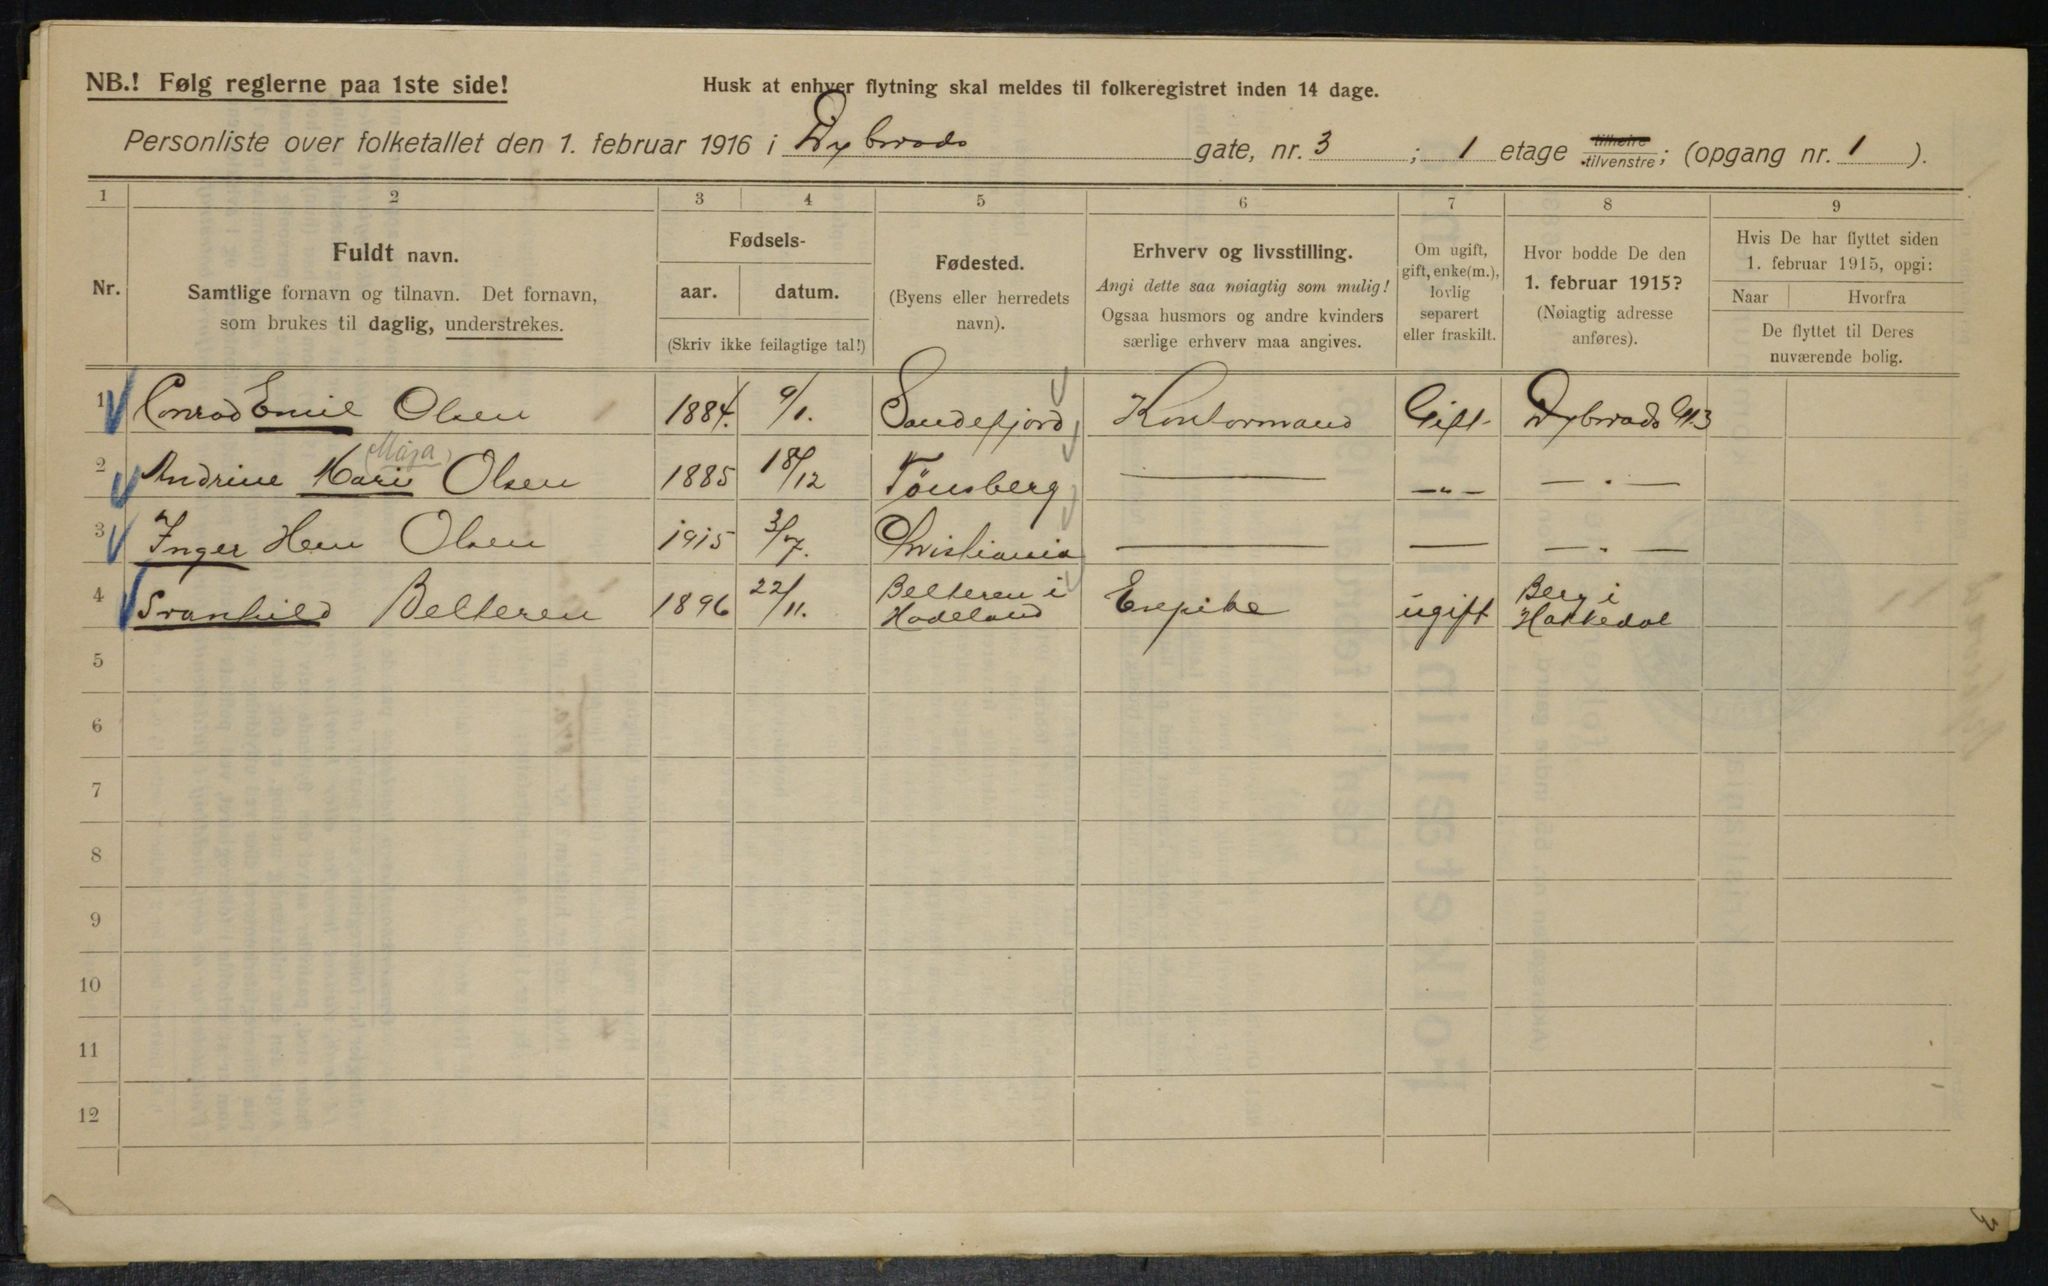 NB.! Følg reglerne paa 1ste side!
Husk at enhver flytning skal meldes til folkeregistret inden 14 dage.
Personliste over folketallet den 1. februar 1916 i Dybwads gate, nr. 3 ; 1 etage tilhøire tilvenstre; (opgang nr. 1 ).
1 2 3 4 5 6 7 8 9
Nr.
Fuldt navn.
Samtlige fornavn og tilnavn. Det fornavn,
som brukes til daglig, understrekes.
Fødsels-
aar. datum.
(Skriv ikke feilagtige tal!)
Fødested.
(Byens eller herredets
navn).
Erhverv og livsstilling.
Angi dette saa nøiagtig som mulig!
Ogsaa husmors og andre kvinders
særlige erhverv maa angives.
Om ugift,
gift, enke(m.),
lovlig
separert
eller fraskilt.
Hvor bodde De den
1. februar 1915?
(Nøiagtig adresse
anføres).
Hvis De har flyttet siden
1. februar 1915, opgi:
Naar Hvorfra
De flyttet til Deres
nuværende bolig.
1 Conrad Emil Olsen 1884. 9/1. Sandefjord Kontormand Gift Dybwads G. 3
(Maja)
2 Andrine Marie Olsen 1885 18/12 Tønsberg — —„— — . —
3 Inger Hem Olsen 1915 3/7. Christiania — — — . —
4 Svanhild Belteren 1896 22/11. Belteren i Hadeland Enepike ugift Berg i Hakkedal
5
6
7
8
9
10
11
12